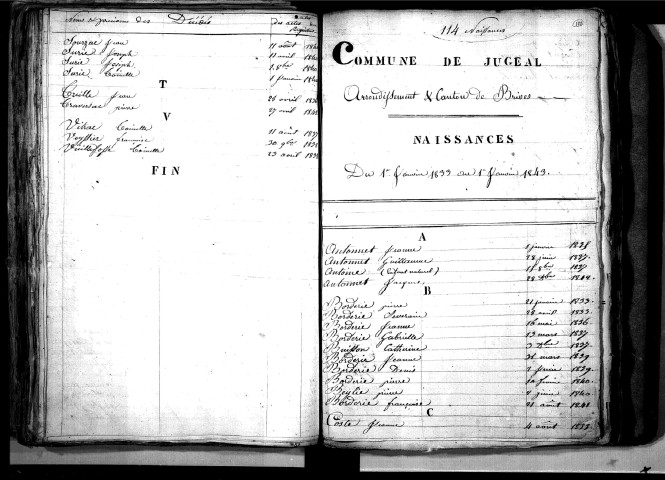 Noms & prénoms des Décédés
Dates des actes du Registre
Sourzac Jean 11 août
Surie Joseph 11 avril
Surie Joseph
Surie Toinette 1 Janvier
T
Treille Jean 28 avril
Traversac pierre 27 avril
V
Vitrac Toinette 11 août
Veyssier françoise 30 9bre
Vieillefosse Toinette 23 avril
FIN
114 Naissances
COMMUNE DE JUGÉAL
Arrondissement & Canton de Brives
NAISSANCES
Du 1er Janvier 1833 au 1er Janvier 1843.
A
Antonnet Jeanne 1 janvier 1838
Antonnet Guillaume 28 juin 1837
Antoine (Enfant naturel) 1837
Antonnet Jacques
B
Borderie pierre 21 janvier 1833
Borderie Severain 28 avril 1833
Borderie Jeanne 16 mai 1836
Borderie Gabrielle 13 mars 1837
Buisson Catherine 3 1837
Borderie Jeanne 31 mars 1839
Borderie Denis 1839
Borderie pierre 1840
Beylie pierre 1840
Borderie françoise 21 août 1841
C
Coste Jeanne 4 août 1833